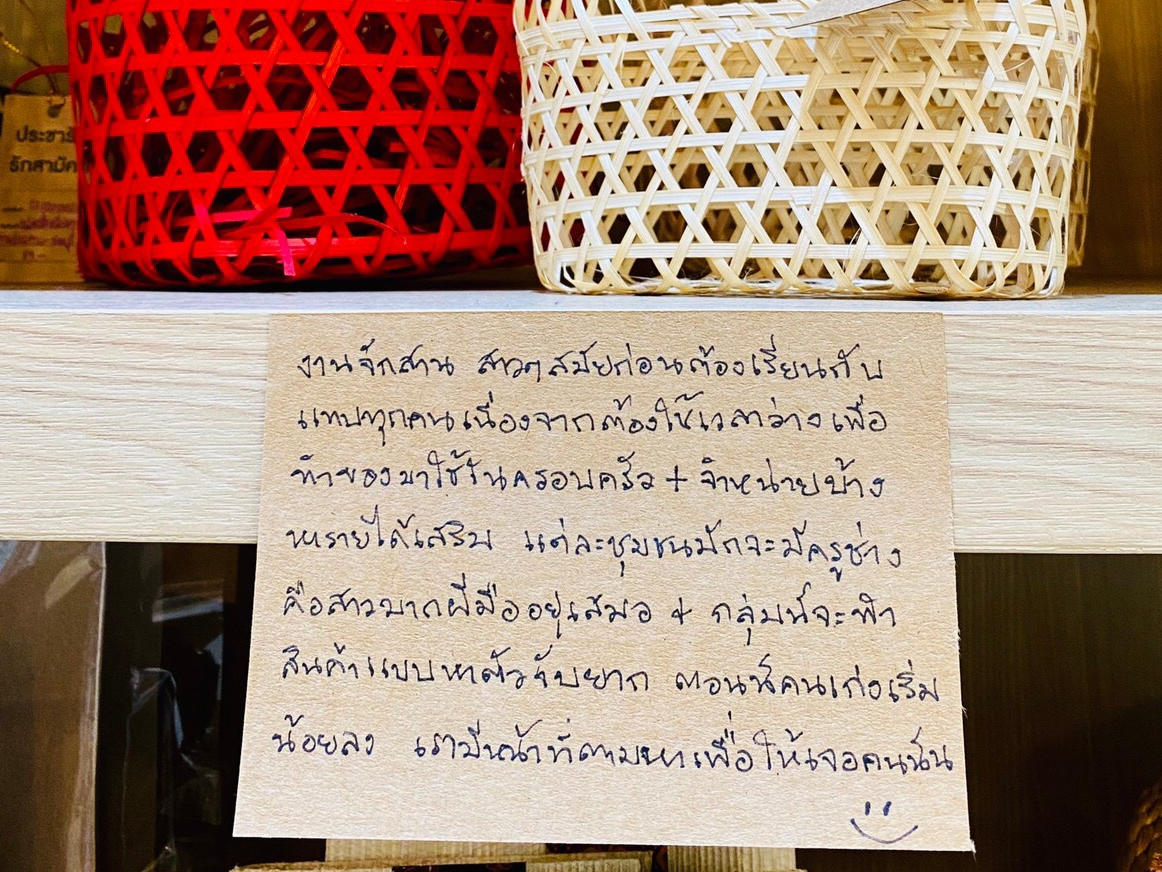 ประชารั
รักสามัค
งานจักสาน สาวๆสมัยก่อนต้องเรียนกับ
แทบทุกคนเนื่องจากต้องใช้เวลาว่างเพื่อ
ทำของมาใช้ในครอบครัว + จำหน่ายบ้าง
หารายได้เสริม แต่ละชุมชนมักจะมีครูช่าง
คือสาวมากฝีมืออยู่เสมอ + กลุ่มนี้จะทำ
สินค้าแบบหาตัวจับยาก ตอนนี้คนเก่งเริ่ม
น้อยลง เรามีหน้าที่ตามหาเพื่อให้เจอคนนั้น